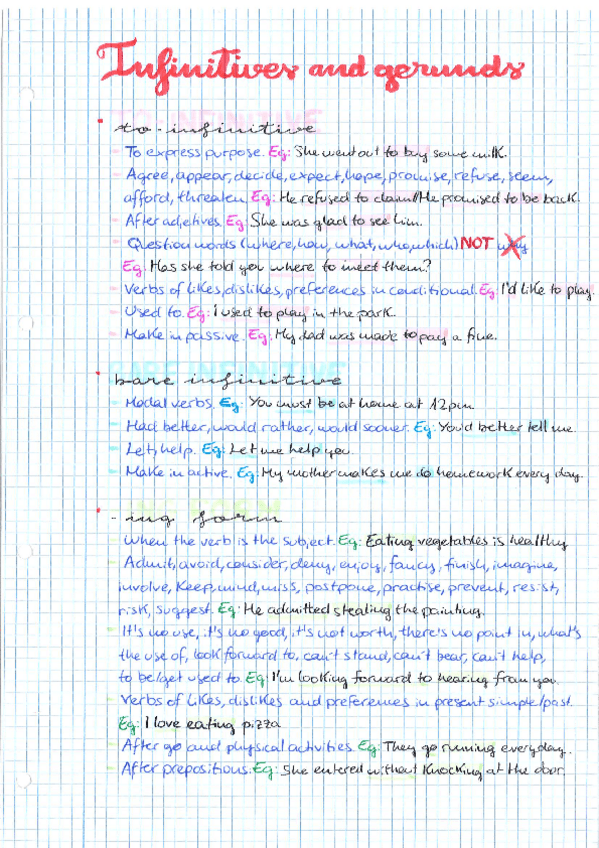 Infinitives and gerunds
to-infinitive
- To express purpose. Eg: She went out to buy some milk.
- Agree, appear, decide, expect, hope, promise, refuse, seem,
afford, threaten. Eg: He refused to claim/He promised to be back.
- After adjetives. Eg: She was glad to see him.
- Question words (where, how, what, who, which) NOT why
Eg: Has she told you where to meet them?
- Verbs of likes, dislikes, preferences in conditional. Eg: I'd like to play.
- Used to. Eg: I used to play in the park.
- Make in passive. Eg: My dad was made to pay a fine.
bare infinitive
- Modal verbs. Eg: You must be at home at 12pm.
- Had better, would rather, would sooner. Eg: You'd better tell me.
- Let, help. Eg: Let me help you.
- Make in active. Eg: My mother makes me do homework every day.
-ing form
- When the verb is the subject. Eg: Eating vegetables is healthy
- Admit, avoid, consider, deny, enjoy, fancy, finish, imagine,
involve, keep, mind, miss, postpone, practise, prevent, resist,
risk, suggest. Eg: He admitted stealing the painting.
- It's no use, it's no good, it's not worth, there's no point in, what's
the use of, look forward to, can't stand, can't bear, can't help,
to be/get used to. Eg: I'm looking forward to hearing from you.
- Verbs of likes, dislikes and preferences in present simple/past.
Eg: I love eating pizza
- After go and physical activities. Eg: They go running everyday.
- After prepositions. Eg: She entered without knocking at the door.